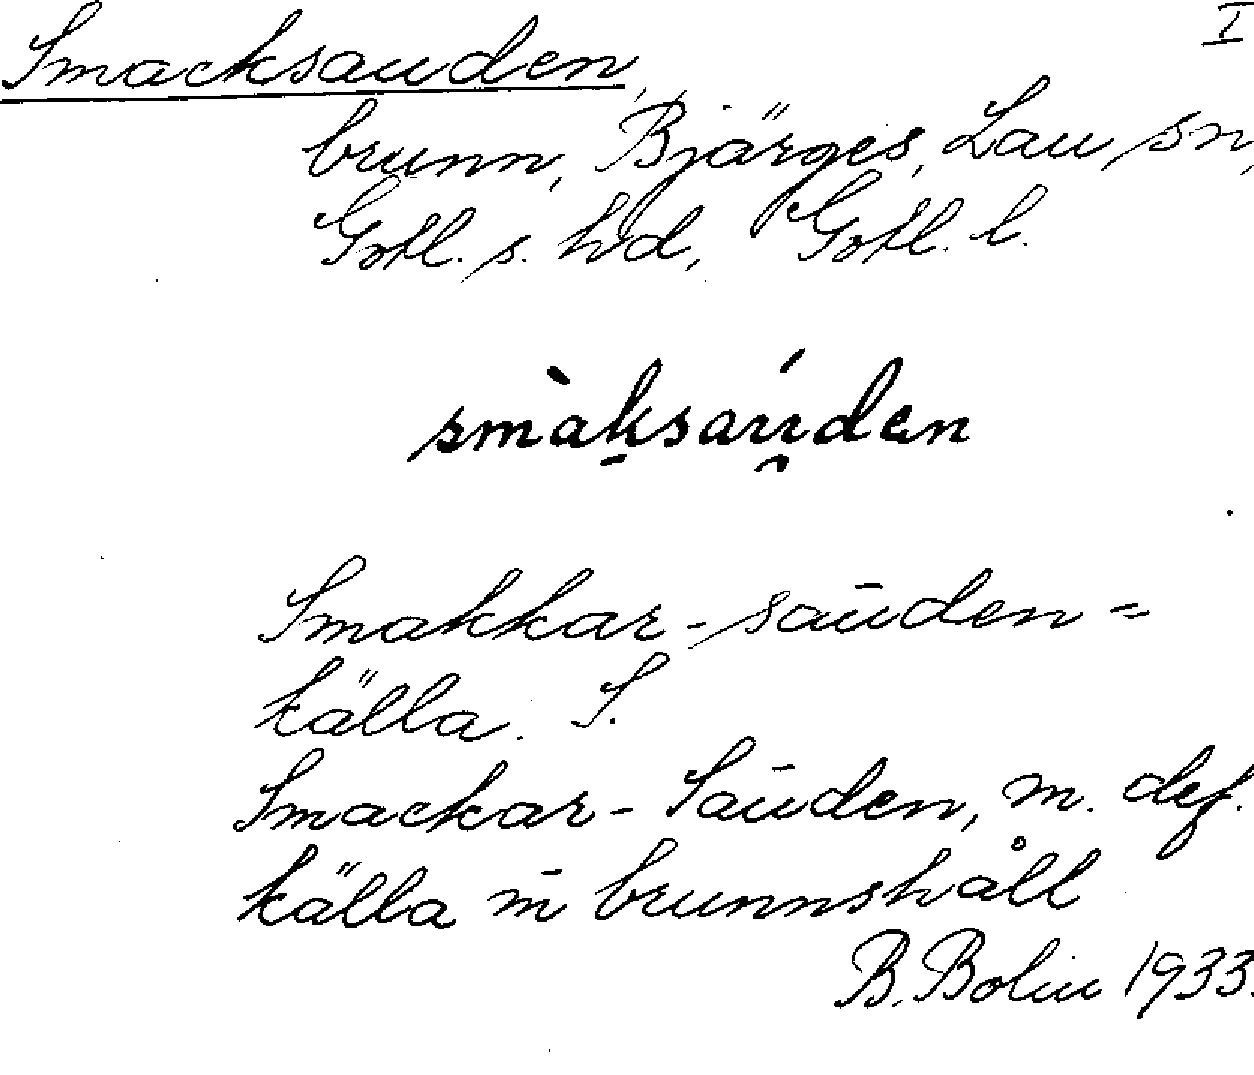 Smacksauden, I
brunn, Bjärges, Lau sn,
Gotl. s. hd, Gotl. l.
smàksaúden
Smakkar-saūden =
källa. S.
Smackar-Saūden, m. def.
källa m̄ brunnshål
B. Bolin 1933.